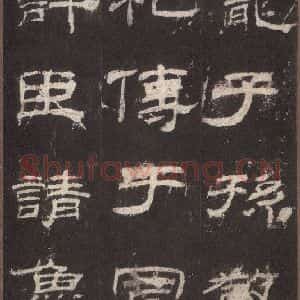 寵子孫敬
祀傳于罔
許臣請魯
Shufawang.Cn